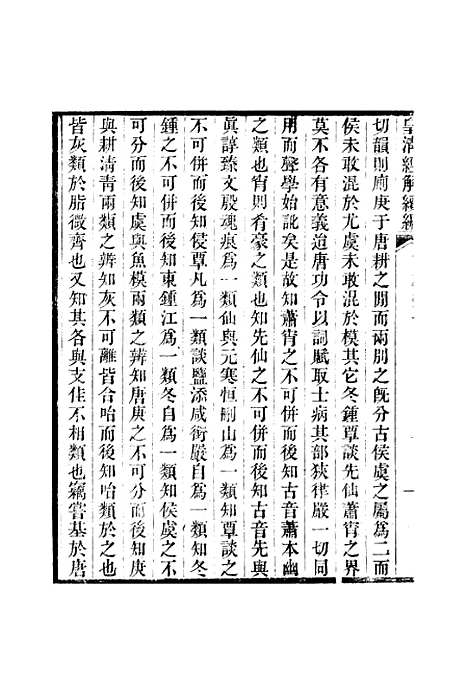 皇清經解續編
切韻則廁庚于唐耕之閒而兩朋之旣分古侯虞之屬爲二而
侯未敢混於尤虞未敢混於模其它冬鍾覃談先仙蕭宵之界
莫不各有意義迨唐功令以詞賦取士病其部狹律嚴一切同
用而聲學始訛矣是故知蕭宵之不可併而後知古音蕭本幽
之類也宵則肴豪之類也知先仙之不可併而後知古音先與
眞諄臻文殷魂痕爲一類仙與元寒恒刪山爲一類知覃談之
不可併而後知侵覃凡爲一類談鹽添咸銜嚴自爲一類知冬
鍾之不可併而後知東鍾江爲一類冬自爲一類知侯虞之不
可分而後知虞與魚模兩類之辨知唐庚之不可分而後知庚
與耕淸靑兩類之辨知灰不可離皆合咍而後知咍類於之也
皆灰類於脂微齊也又知其各與支佳不相類也竊嘗基於唐